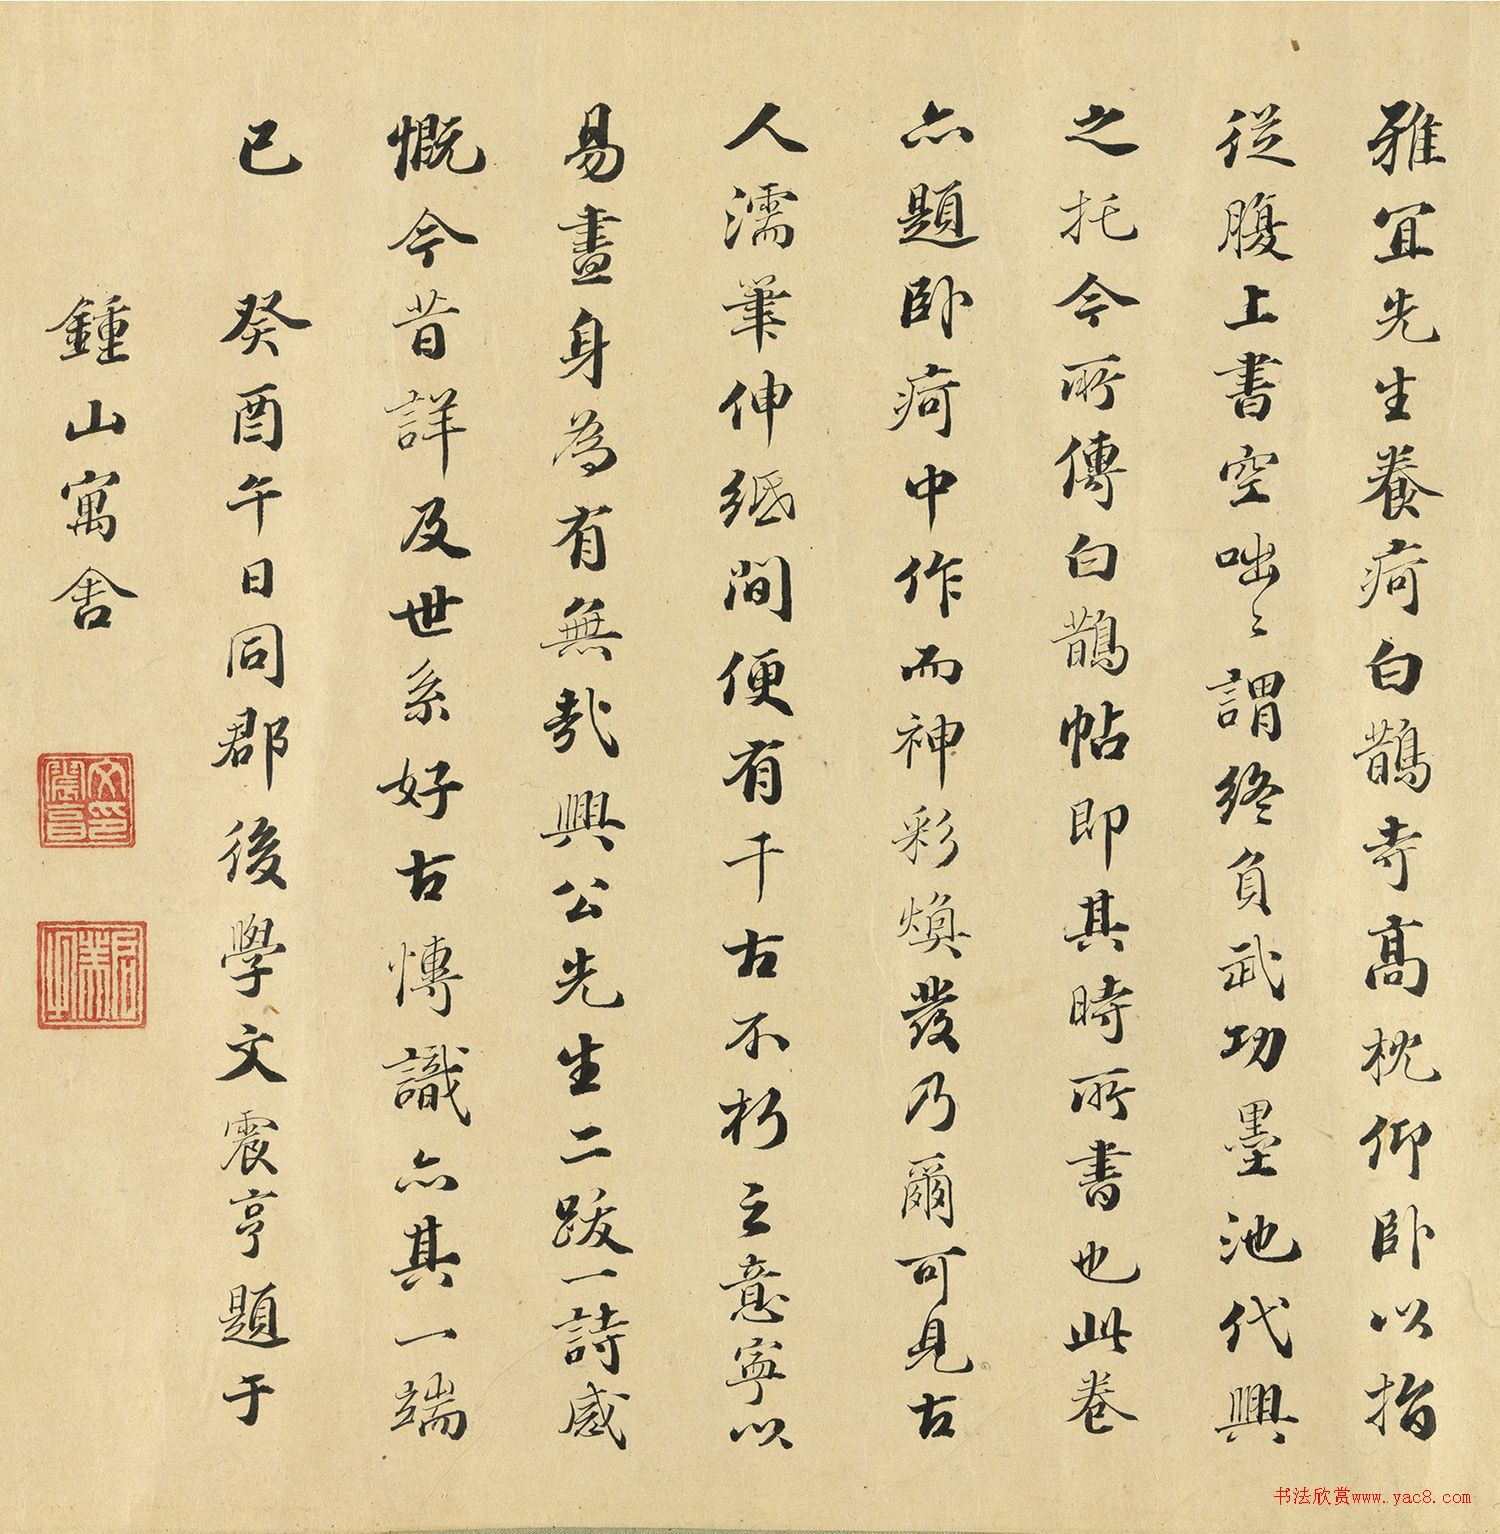 雅宜先生養疴白鵲寺高枕仰卧以指
從腹上書空咄〻謂終負武功墨池代興
之托今所傳白鵲帖即其時所書也此卷
亦題卧疴中作而神彩煥發乃爾可見古
人濡筆伸紙間便有千古不朽之意寧以
易畫身為有無哉興公先生二跋一詩感
慨今昔詳及世系好古慱識亦其一端
已
癸酉午日同郡後學文震亨題于
鍾山寓舍
书法欣赏www.yac8.com